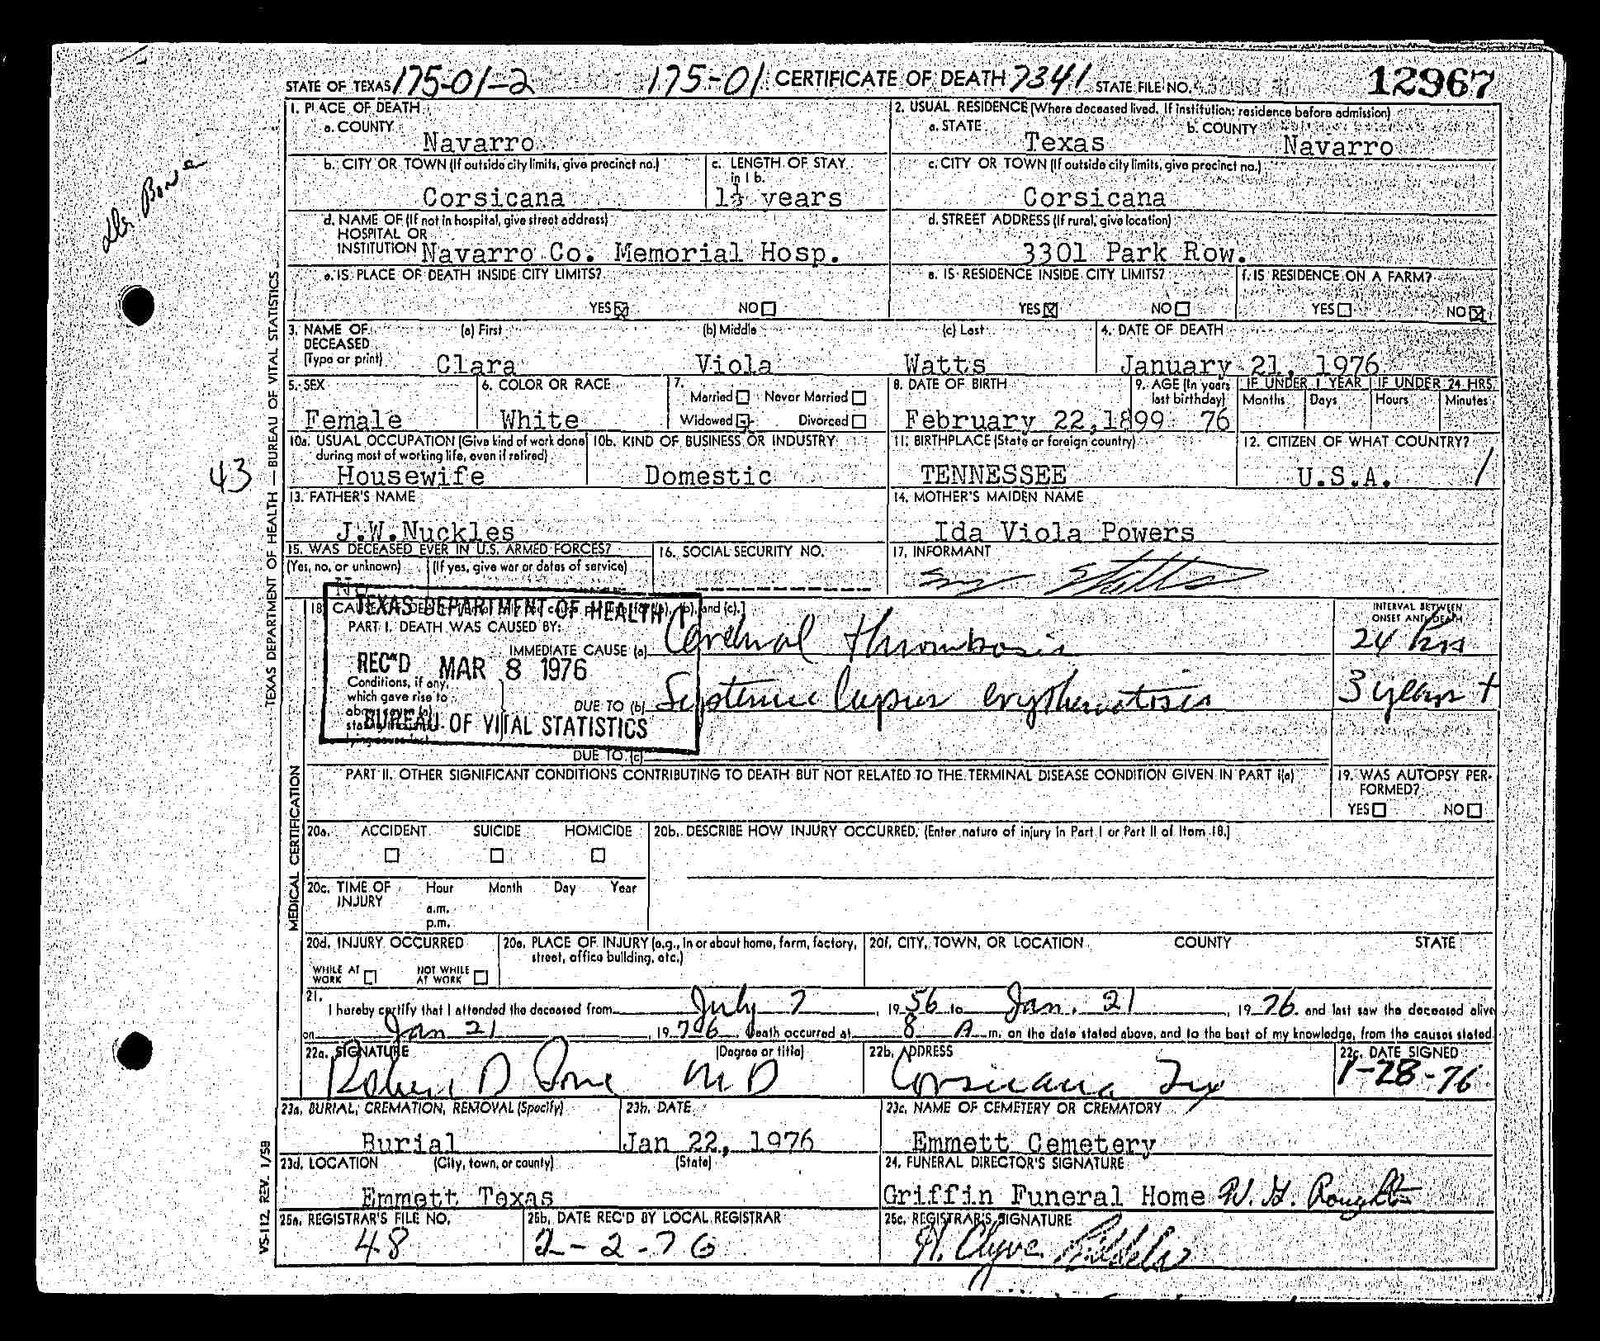 STATE OF TEXAS 175-01-2 175-01 CERTIFICATE OF DEATH 7341 STATE FILE NO. 12967
1. PLACE OF DEATH
a. COUNTY
Navarro
2. USUAL RESIDENCE (Where deceased lived. If institution: residence before admission)
a. STATE b. COUNTY
Texas Navarro
b. CITY OR TOWN (If outside city limits, give precinct no.)
Corsicana
c. LENGTH OF STAY
in 1 b.
1½ years
c. CITY OR TOWN (If outside city limits, give precinct no.)
Corsicana
d. NAME OF (If not in hospital, give street address)
HOSPITAL OR
INSTITUTION Navarro Co. Memorial Hosp.
d. STREET ADDRESS (If rural, give location)
3301 Park Row.
e. IS PLACE OF DEATH INSIDE CITY LIMITS?
YES NO
e. IS RESIDENCE INSIDE CITY LIMITS?
YES NO
f. IS RESIDENCE ON A FARM?
YES NO
3. NAME OF (a) First (b) Middle (c) Last
DECEASED
(Type or print) Clara Viola Watts
4. DATE OF DEATH
January 21, 1976
5. SEX
Female
6. COLOR OR RACE
White
7.
Married Never Married
Widowed Divorced
8. DATE OF BIRTH
February 22,1899
9. AGE (In years
last birthday)
76
IF UNDER 1 YEAR IF UNDER 24 HRS.
Months Days Hours Minutes
10a. USUAL OCCUPATION (Give kind of work done
during most of working life, even if retired)
Housewife
10b. KIND OF BUSINESS OR INDUSTRY
Domestic
11. BIRTHPLACE (State or foreign country)
TENNESSEE
12. CITIZEN OF WHAT COUNTRY?
U.S.A.
43
13. FATHER'S NAME
J.W.Nuckles
14. MOTHER'S MAIDEN NAME
Ida Viola Powers
15. WAS DECEASED EVER IN U.S. ARMED FORCES?
(Yes, no, or unknown) (If yes, give war or dates of service)
16. SOCIAL SECURITY NO.
17. INFORMANT
TEXAS DEPARTMENT OF HEALTH
REC'D MAR 8 1976
BUREAU OF VITAL STATISTICS
PART I. DEATH WAS CAUSED BY:
IMMEDIATE CAUSE (a) Cerebral thrombosis
INTERVAL BETWEEN
ONSET AND DEATH
24 hrs
Conditions, if any,
which gave rise to
DUE TO (b) Systemic lupus erythematosis
3 years +
DUE TO (c)
PART II. OTHER SIGNIFICANT CONDITIONS CONTRIBUTING TO DEATH BUT NOT RELATED TO THE TERMINAL DISEASE CONDITION GIVEN IN PART I(a)
19. WAS AUTOPSY PER-
FORMED?
YES NO
20a. ACCIDENT SUICIDE HOMICIDE
20b. DESCRIBE HOW INJURY OCCURRED. (Enter nature of injury in Part I or Part II of Item 18.)
20c. TIME OF Hour Month Day Year
INJURY
a.m.
p.m.
20d. INJURY OCCURRED
WHILE AT
WORK
NOT WHILE
AT WORK
20e. PLACE OF INJURY (e.g., in or about home, farm, factory,
street, office building, etc.)
20f. CITY, TOWN, OR LOCATION COUNTY STATE
21.
I hereby certify that I attended the deceased from July 7, 1956 to Jan. 21, 1976 and last saw the deceased alive
on Jan 21 1976 death occurred at 8 A m. on the date stated above, and to the best of my knowledge, from the causes stated
22a. SIGNATURE (Degree or title)
Robert D Bone MD
22b. ADDRESS
Corsicana Tex
22c. DATE SIGNED
1-28-76
23a. BURIAL, CREMATION, REMOVAL (Specify)
Burial
23b. DATE
Jan 22, 1976
23c. NAME OF CEMETERY OR CREMATORY
Emmett Cemetery
23d. LOCATION (City, town, or county) (State)
Emmett Texas
24. FUNERAL DIRECTOR'S SIGNATURE
Griffin Funeral Home
25a. REGISTRAR'S FILE NO.
48
25b. DATE REC'D BY LOCAL REGISTRAR
2-2-76
25c. REGISTRAR'S SIGNATURE
Dr Bone
TEXAS DEPARTMENT OF HEALTH — BUREAU OF VITAL STATISTICS
MEDICAL CERTIFICATION
VS-112, REV. 1/59